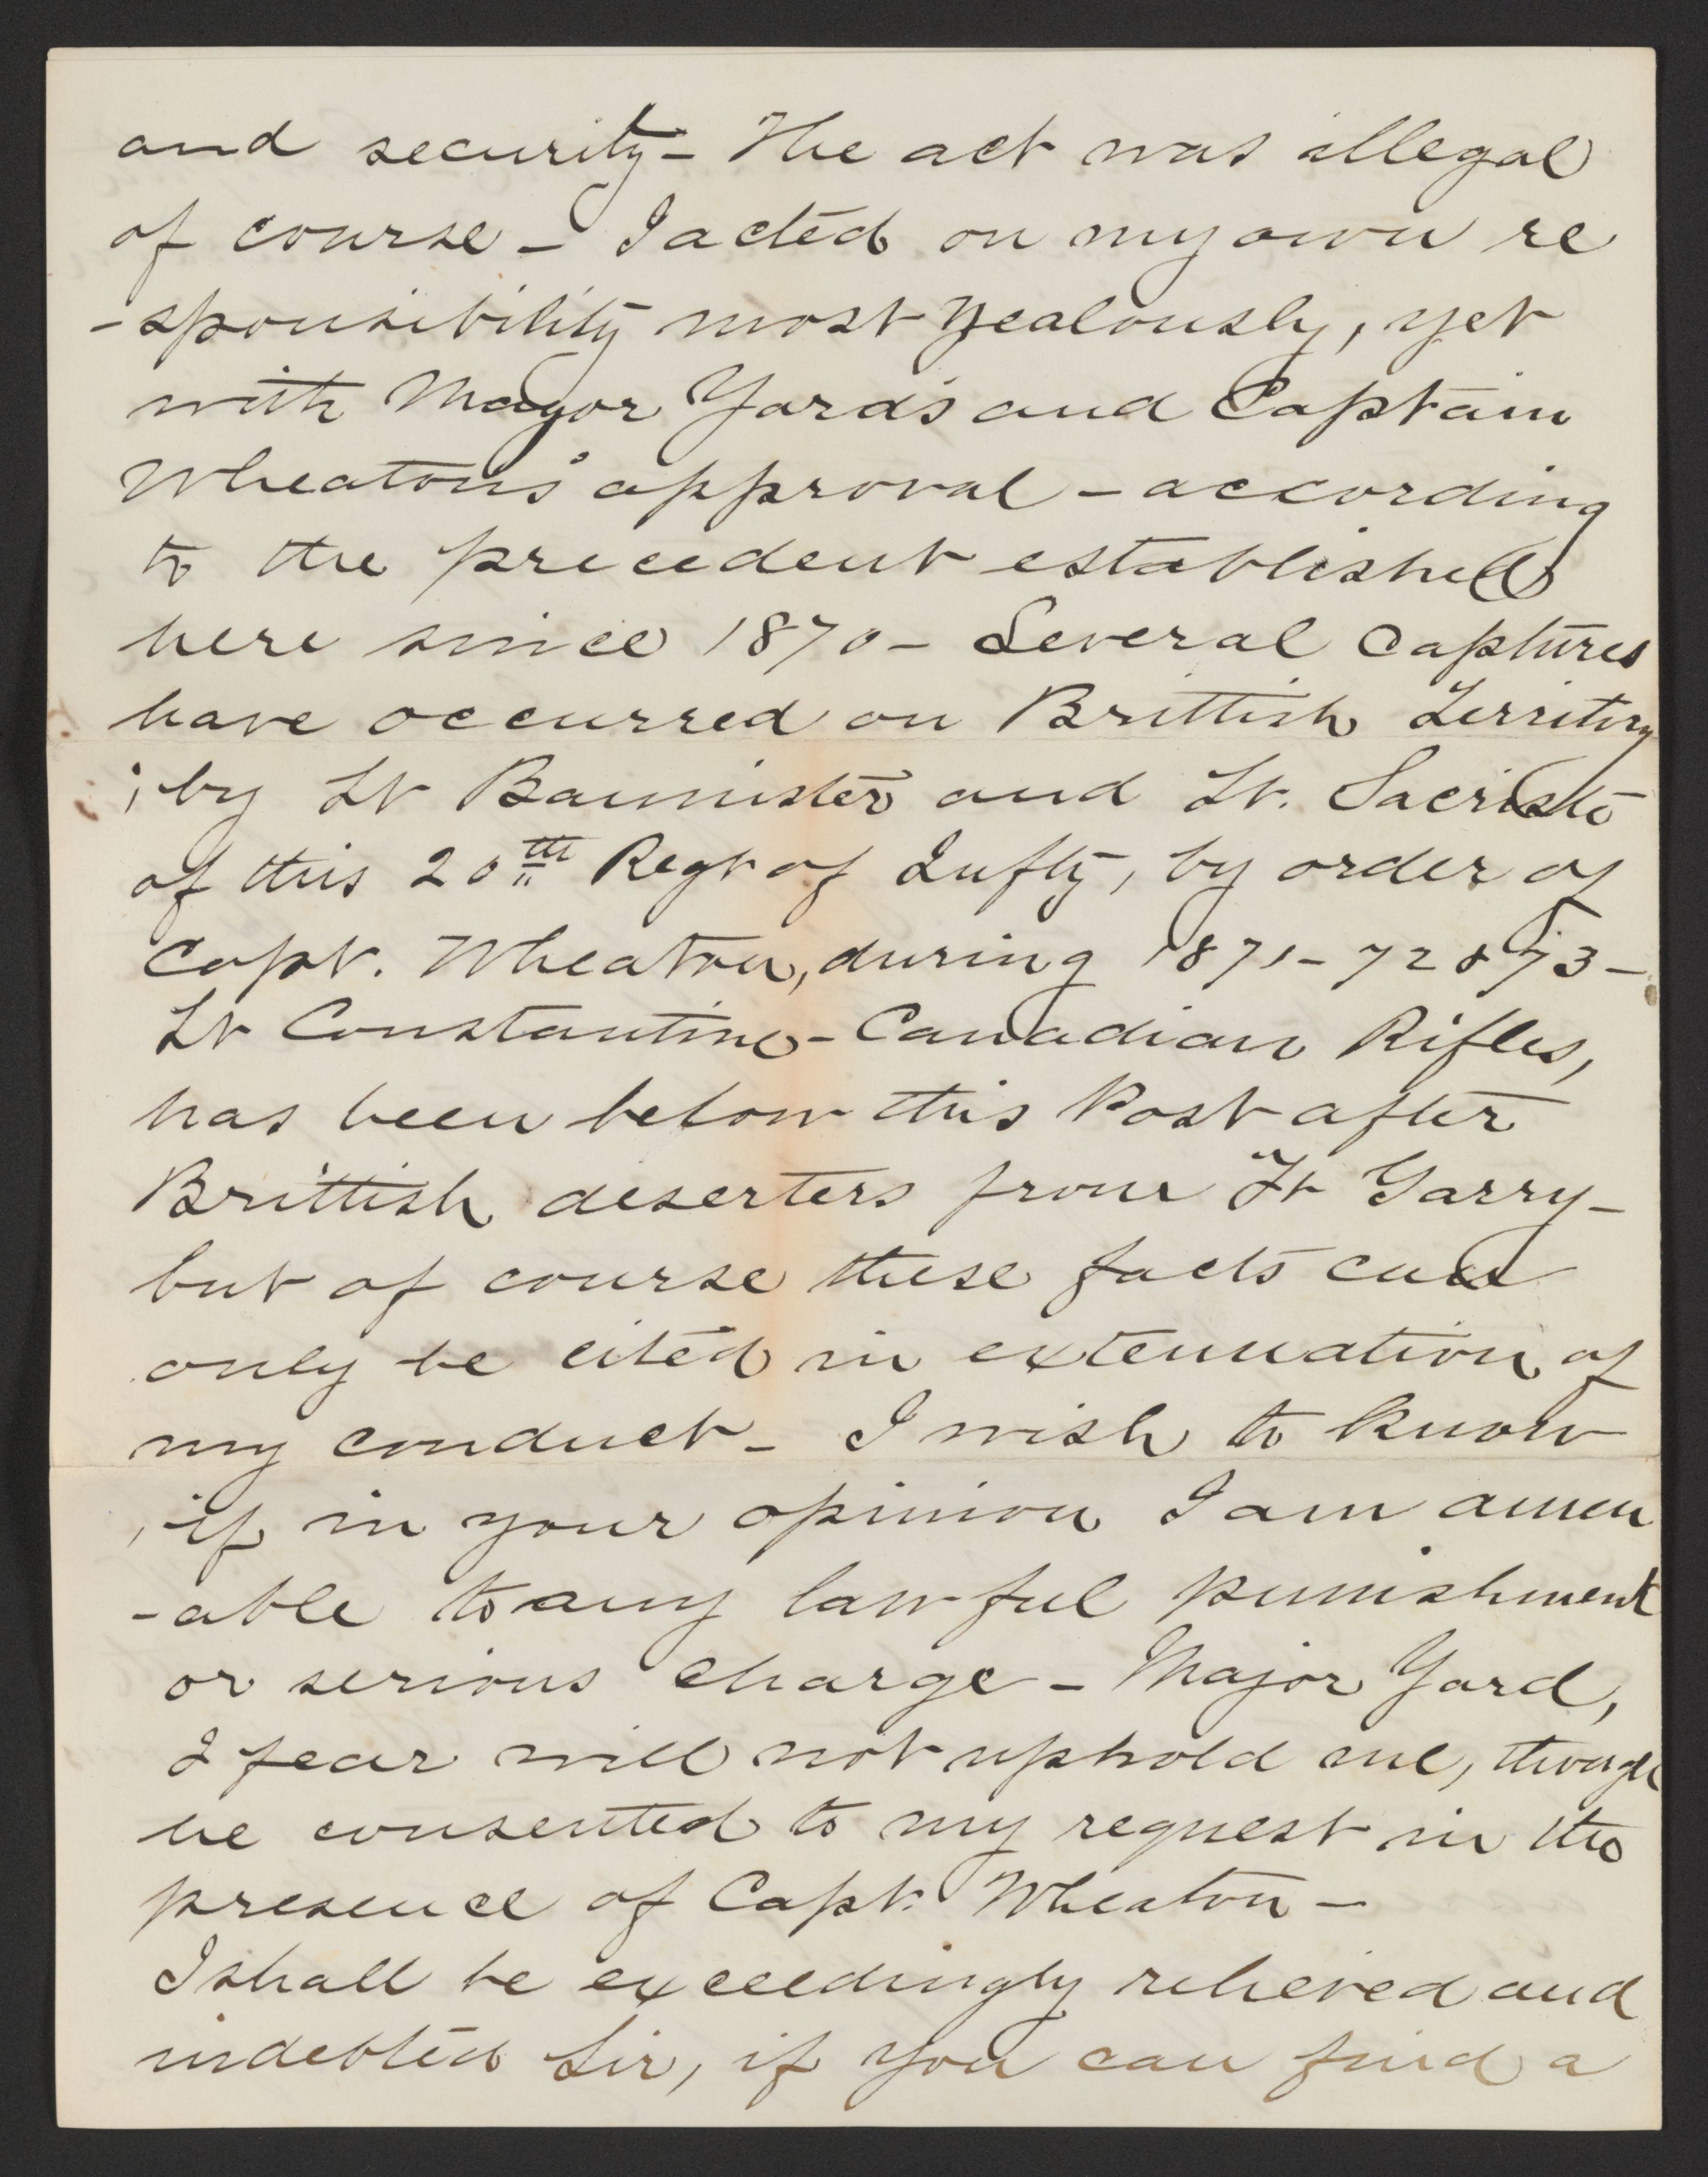 and security – The act was illegal
of course – I acted on my own re
-sponsibility most zealously, yet
with Mayor Yard's and Captain
Wheaton's approval – according
to the precedent established
here since 1870 – Several captures
have occurred on Brittish Territory
; by Lt Bannister and Lt. Sacriste
of this 20th Regt of Infty, by order of
Capt. Wheaton, during 1871–72 & 73 –
Lt Constantine – Canadian Rifles,
has been below this Post after
Brittish deserters from Ft Garry –
but of course these facts can
only be cited in extenuation of
my conduct – I wish to know
, if in your opinion I am amen
-able to any lawful punishment
or serious charge – Major Yard,
I fear will not uphold me, though
he consented to my request in the
presence of Capt. Wheaton –
I shall be exceedingly relieved and
indebted Sir, if you can find a